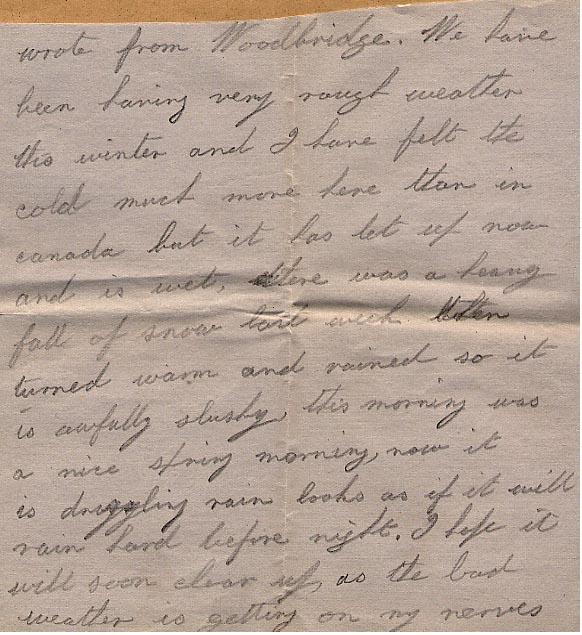 wrote from Woodbridge. We have
been having very rough weather
this winter and I have felt the
cold much more here than in
canada but it has let up now
and is wet, there was a heavy
fall of snow last week then
turned warm and rained so it
is awfully slushy, this morning was
a nice spring morning, now it
is drizzling rain looks as if it will
rain hard before night. I hope it
will soon clear up, as the bad
weather is getting on my nerves